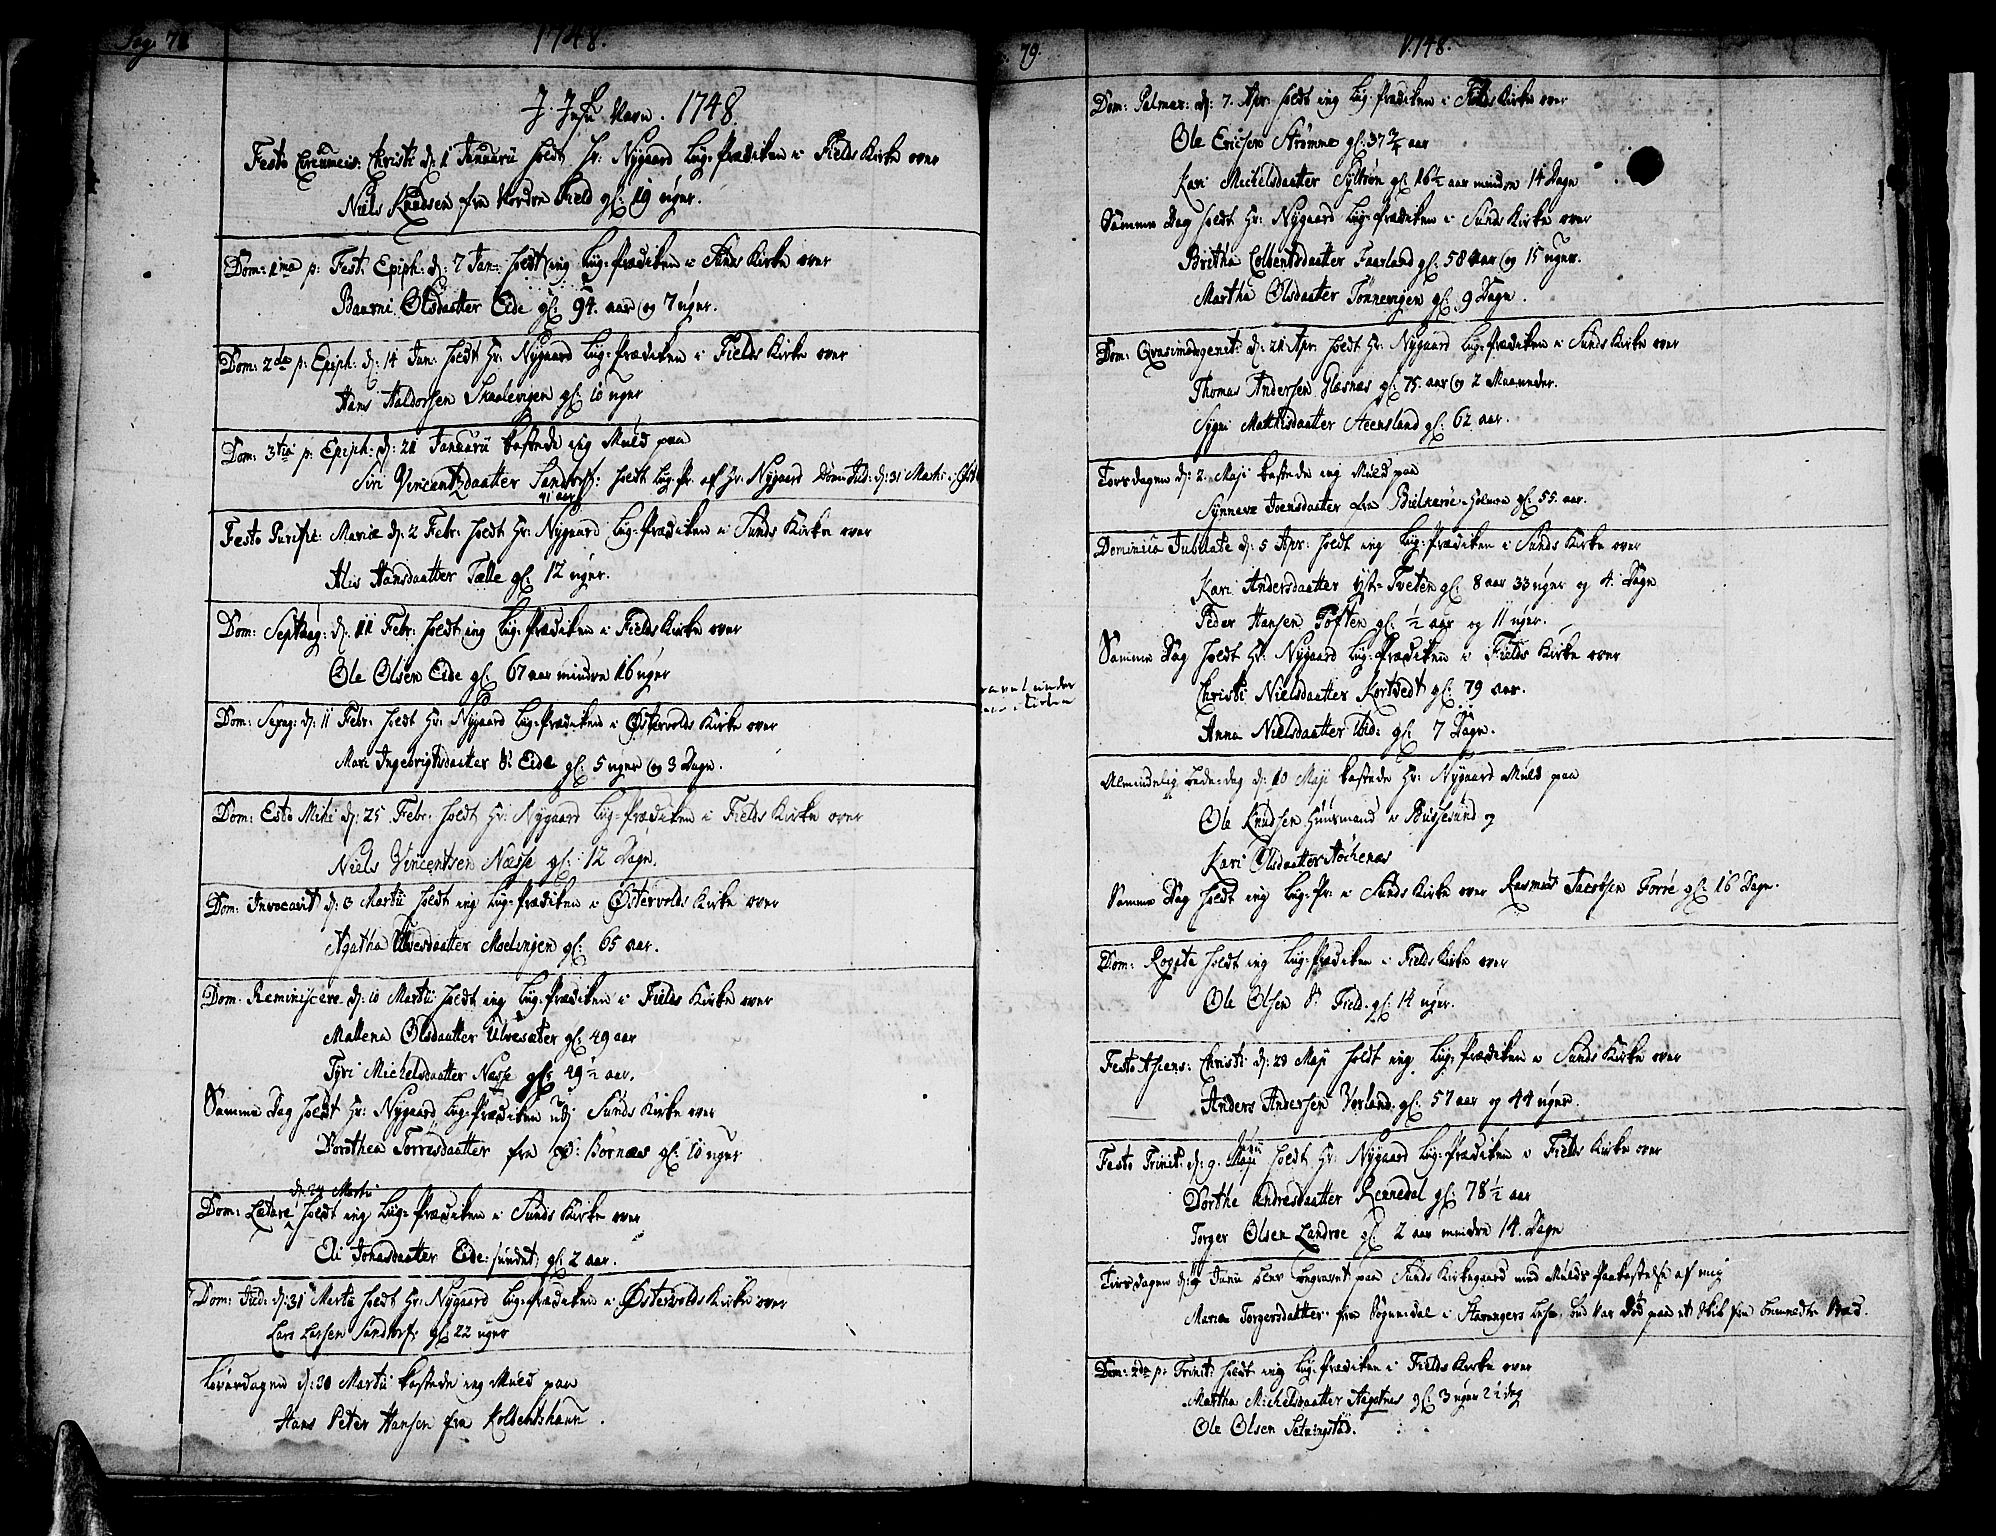 Pag. 78
1748.
J. Jesu Navn. 1748.
Festo Circumcis: Christi d: 1 Januarii holdt Hr: Nygaard Liig-Prædiken i Fields Kirke over
Niels Knudsen fra Nordre Field gl: 19 uger.
Dom: 1ma p: Fest. Epiph: d: 7 Jan: holdt ieg Liig-Prædiken i Sunds Kirke over
Baarni Olsdaatter Eide gl: 94 aar og 7 uger.
Dom: 2da p: Epiph: d: 14 Jan: holdt Hr: Nygaard Liig-Prædiken i Fields Kirke over
Hans Haldorsen Skaalevigen gl: 10 uger
Dom: 3tia p: Epiph: d: 21 Januarii kastede ieg Muld paa
Siri Vincentzdaatter Sandtorf: holdt Liig-Pr. af Hr: Nygaard Dom: Jud: d: 31 Martii i Øst
41 aar
Festo Purific: Mariæ d: 2 Febr: holdt Hr: Nygaard Liig-Prædiken i Sunds Kirke over
Alis Hansdaatter Tælle gl: 12 uger.
Dom: Septuag: d: 11 Febr: holdt ieg Liig-Prædiken i Fields Kirke over
Ole Olsen Eide gl: 67 aar mindre 16 uger
Dom: Sexag: d: 11 Febr: holdt Hr: Nygaard Liig-Prædiken i Østervolds Kirke over
Mari Ingebrigtsdaatter S: Eide gl: 5 uger og 3 Dage.
Dom: Esto Mihi d: 25 Febr: holdt Hr: Nygaard Liig-Prædiken i Fields Kirke over
Niels Vincentsen Næsse gl: 12 Dage.
Dom: Invocavit d: 3 Martii holdt ieg Liig-Prædiken i Østervolds Kirke over
Agatha Ulvesdaatter Moelingen gl: 65 aar.
Dom. Reminiscere d: 10 Martii holdt ieg Liig-Prædiken i Fields Kirke over
Mallena Olsdaatter Ulvesæter gl: 49 aar
Tyri Michelsdaatter Næsse gl: 49½ aar.
Samme Dag holdt Hr: Nygaard Liig-Prædiken udj Sunds Kirke over
Dorothea Torresdaatter fra Bornæs gl: 10 uger
d: 24 Martii
Dom: Lætare holdt ieg Liig-Prædiken i Sunds Kirke over
Eli Jonasdaatter Eide-sundet gl: 2 aar.
Dom: Jud: d: 31 Martii holdt Hr: Nygaard Liig-Prædiken i Østervolds Kirke over
Lars Larsen Sandtorf: gl: 22 uger
Løverdagen d: 30 Martii kastede ieg Muld paa
Hans Peter Hansen fra Koldentshavn.
79.
1748.
Dom: Palmar: d: 7. Apr: holdt ieg Liig-Prædiken i Fields Kirke over
Ole Ericsen Strømme gl: 37¾ aar
Kari Michelsdaatter Syltøen gl: 16½ aar mindre 14 Dage
Samme Dag holdt Hr: Nygaard Liig-Prædiken i Sunds Kirke over
Britha Colbentsdaatter Faarland gl: 58 aar og 15 uger.
Martha Olsdaatter Tonnevigen gl: 9 Dage.
Dom: Qvasimodogenit: d: 21 Apr: holdt Hr: Nygaard Liig-Prædiken i Sunds Kirke over
Thomas Andersen Glæsnæs gl: 75 aar og 2 Maaneder.
Sygni Matthisdaatter Steensland gl: 62 aar.
Torsdagen d: 2. Maji kastede ieg Muld paa
Synneve Joensdaatter fra Bielkerøe-Holmen gl: 55 aar.
Dominica Jubilate d: 5 Apr: holdt ieg Liig-Prædiken i Sunds Kirke over
Kari Andersdaatter Yst-Tveten gl: 8 aar 33 uger og 4. Dage
Peder Hansen Toften gl: ½ aar og 11 uger.
Samme Dag holdt Hr: Nygaard Liig-Prædiken i Fields Kirke over
Christi Nielsdaatter Kortvedt gl: 79 aar.
Anna Nielsdaatter ibid: gl: 7 Dage.
Almindelig Bede-dag d: 10 Maji kastede Hr: Nygaard Muld paa
Ole Knudsen Huusmand i Bussesund og
Kari Olsdaatter
Samme Dag holdt ieg Liig-Pr: i Sunds Kirke over Rasmus Jacobsen Forre gl: 16 Dage.
Dom: Rogate holdt ieg Liig-Prædiken i Fields Kirke over
Ole Olsen S: Field gl: 14 uger.
Festo Ascens: Christi d: 23 Maji holdt ieg Liig-Prædiken i Sunds Kirke over
Anders Andersen Vorland gl: 57 aar og 44 uger.
Festo Trinit: d: 9. Junii holdt Hr: Nygaard Liig-Prædiken i Fields Kirke over
Dorthe Andresdaatter Rennedal gl: 78½ aar
Torger Olsen Landroe gl: 2 aar mindre 14. Dage
Tirsdagen d: Junii blev begravet paa Sunds Kirkegaard med Mulds Paakastelse af mig
Maria Torgersdaatter fra Sognedal i Stavangers Lehn, som var død paa et Skib fra bemeldte Stæd.
Dom: 2da p: Trinit: holdt ieg Liig-Prædiken i Fields Kirke over
Martha Michelsdaatter Aagotnes gl: 3 uger 2½ dag
Ole Olsen Selvingstad.